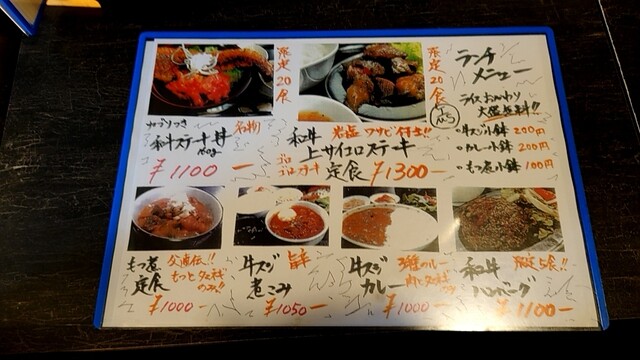 限定20食
限定20食
ランチ
メニュー
ライスおかわり
大盛無料!!
・牛スジ小鉢 200円
・カレー小鉢 200円
・もつ煮小鉢 100円
名物
和牛ステーキ丼
¥1100-
和牛 岩塩 ワサビ付き!!
上サイコロステーキ
定食 ¥1300-
もつ煮 父直伝!!
定食 もつとタマネギ
のみ!!
¥1000-
牛スジ 旨辛
煮こみ
¥1050-
牛スジ 3種のルー
カレー
¥1000-
和牛 限定5食!!
ハンバーグ
¥1100-